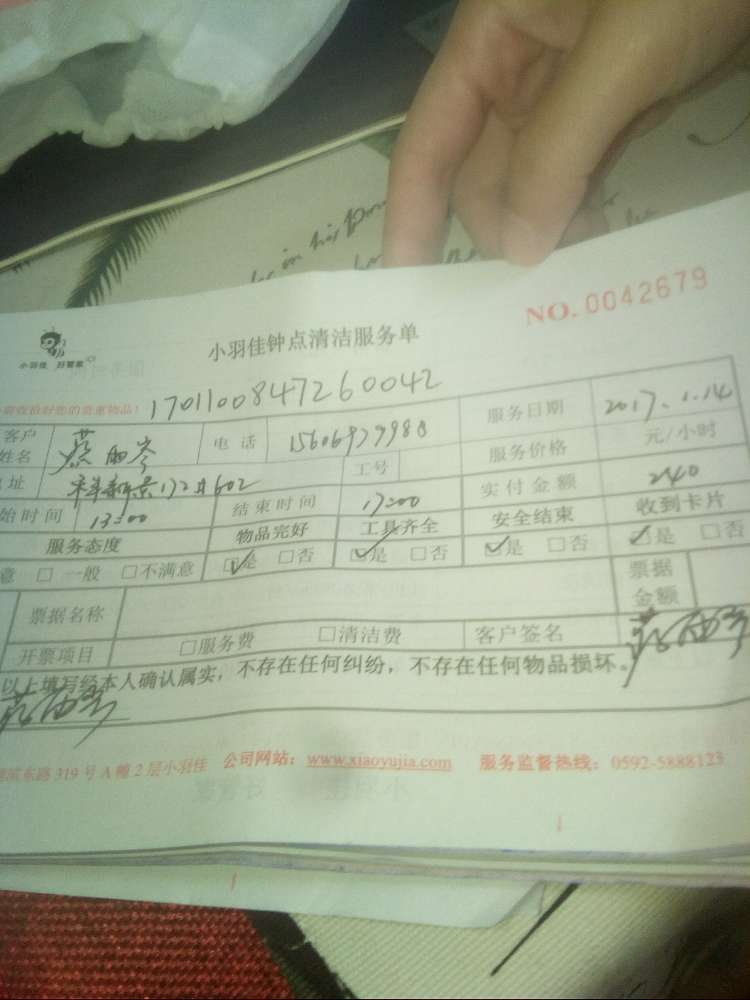 NO.0042679
小羽佳 好管家
小羽佳钟点清洁服务单
您的贵重物品! 1701100847260042
客户姓名 蔡 电话 服务日期 2017.1.14
址 602 工号 服务价格 元/小时
始时间 13:00 结束时间 17:00 实付金额 240
服务态度 物品完好 工具齐全 安全结束 收到卡片
意 □一般 □不满意 ☑是 □否 ☑是 □否 ☑是 □否 ☑是 □否
票据名称 票据金额
开票项目 □服务费 □清洁费 客户签名
以上填写经本人确认属实，不存在任何纠纷，不存在任何物品损坏。
滨东路319号A幢2层小羽佳 公司网站：www.xiaoyujia.com 服务监督热线：0592-5888123